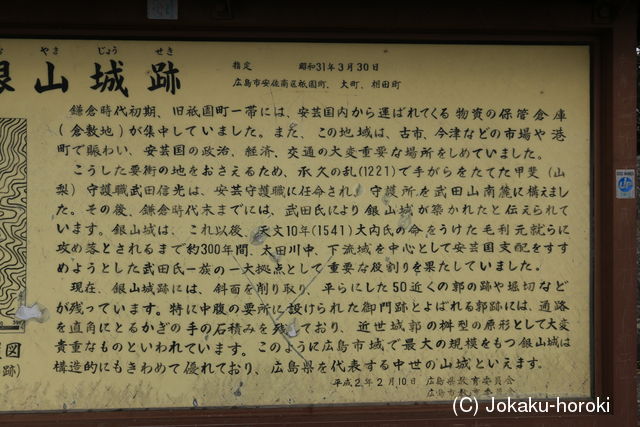 おやまじょうせき
銀山城跡
指定 昭和31年3月30日
広島市安佐南区祇園町、大町、相田町
鎌倉時代初期、旧祇園町一帯には、安芸国内から運ばれてくる物資の保管倉庫
(倉敷地)が集中していました。また、この地域は、古市、今津などの市場や港
町で賑わい、安芸国の政治、経済、交通の大変重要な場所をしめていました。
こうした要衝の地をおさえるため、承久の乱(1221)で手がらをたてた甲斐(山
梨)守護職武田信光は、安芸守護職に任命され、守護所を武田山南麓に構えまし
た。その後、鎌倉時代末までには、武田氏により銀山城が築かれたと伝えられて
います。銀山城は、これ以後、天文10年(1541)大内氏の命をうけた毛利元就らに
攻め落とされるまで約300年間、太田川中、下流域を中心として安芸国支配をすす
めようとした武田氏一族の一大拠点として重要な役割りを果たしていました。
現在、銀山城跡には、斜面を削り取り、平らにした50近くの郭の跡や堀切など
が残っています。特に中腹の要所に設けられた御門跡とよばれる郭跡には、通路
を直角にとるかぎの手の石積みを残しており、近世城郭の桝型の原形として大変
貴重なものといわれています。このように広島市域で最大の規模をもつ銀山城は
構造的にもきわめて優れており、広島県を代表する中世の山城といえます。
平成2年2月10日 広島県教育委員会
広島市教育委員会
図
跡)
(C) Jokaku-horoki